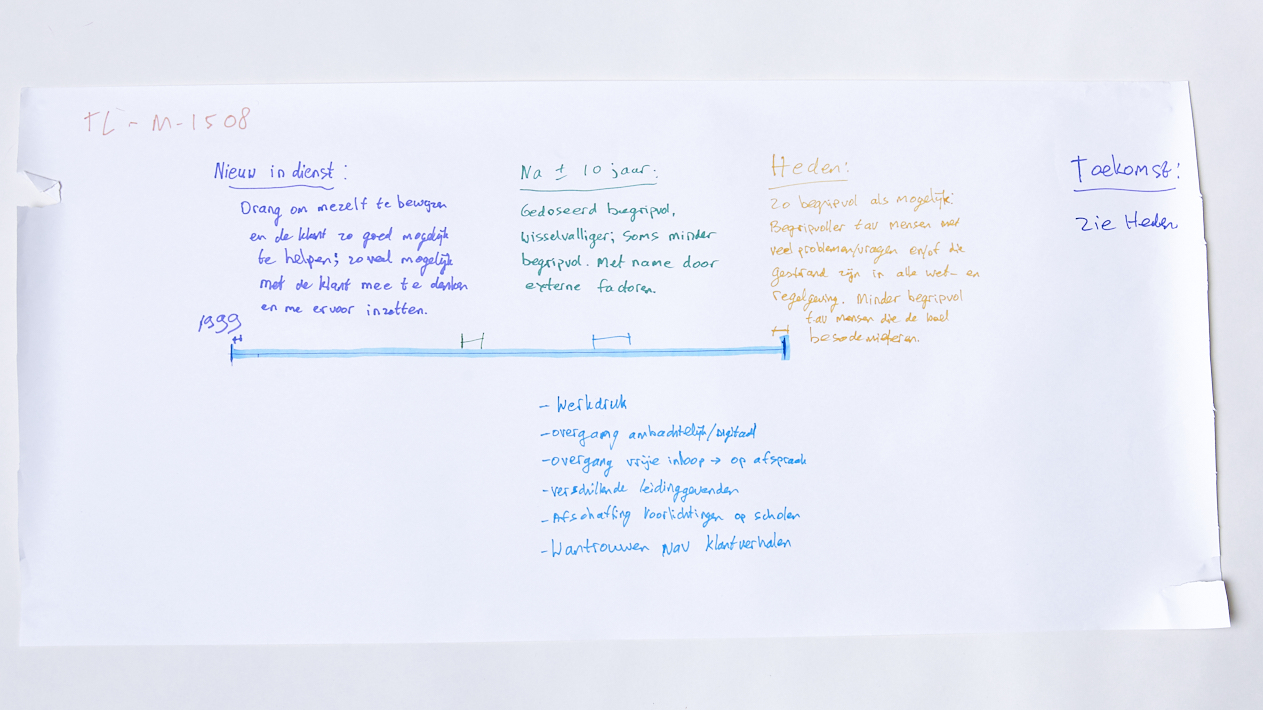 TL-M-1508
Nieuw in dienst:
Drang om mezelf te bewijzen
en de klant zo goed mogelijk
te helpen; zoveel mogelijk
met de klant mee te denken
en me ervoor inzetten.
1999
Na ± 10 jaar:
Gedoseerd begripvol,
wisselvalliger; soms minder
begripvol. Met name door
externe factoren.
Heden:
Zo begripvol als mogelijk:
Begripvoller tav mensen met
veel problemen/vragen en/of die
gestrand zijn in alle wet- en
regelgeving. Minder begripvol
tav mensen die de boel
besodemieteren.
Toekomst:
Zie Heden
- Werkdruk
- overgang ambachtelijk/Digitaal
- overgang vrije inloop → op afspraak
- verschillende leidinggevenden
- Afschaffing voorlichtingen op scholen
- Wantrouwen nav klantverhalen